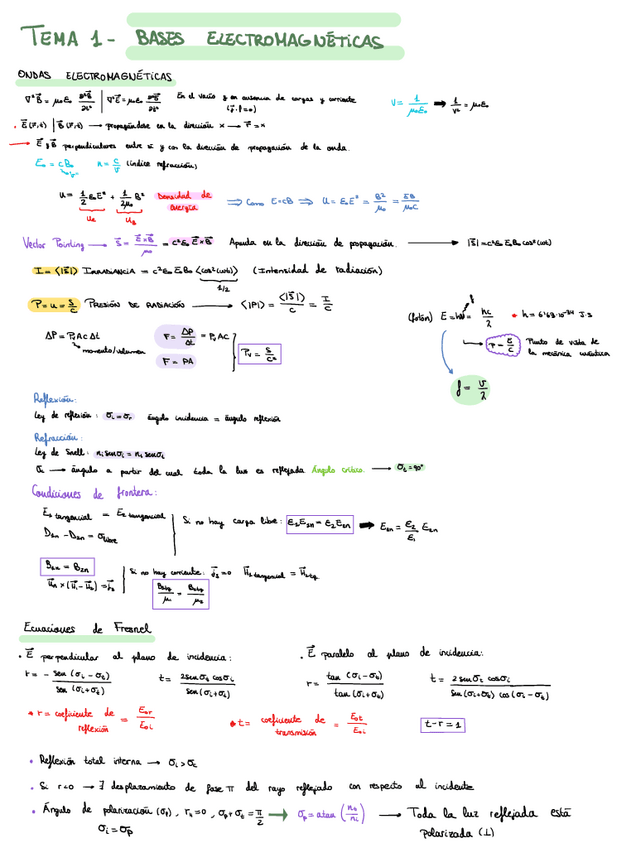 TEMA 1- BASES ELECTROMAGNÉTICAS
ONDAS ELECTROMAGNÉTICAS
∇²B⃗ = μ₀ε₀ ∂²B⃗/∂t² | ∇²E⃗ = μ₀ε₀ ∂²E⃗/∂t² En el vacío y en ausencia de cargas y corriente
v = 1/μ₀ε₀ → 1/v² = μ₀ε₀
. E⃗(r,t) | B⃗(r,t) → propagándose en la dirección x → r⃗ = x
→ E⃗ y B⃗ perpendiculares entre sí y con la dirección de propagación de la onda.
E₀ = cB₀ n = c/v (índice refracción)
u = 1/2 ε₀E² + 1/2μ₀ B² Densidad de energía ⇒ Como E=cB ⇒ u = ε₀E² = B²/μ₀ = EB/μ₀c
u_E u_B
Vector Pointing → S⃗ = E⃗×B⃗/μ₀ = c²ε₀ E⃗×B⃗ Apunta en la dirección de propagación. → |S⃗| = c²ε₀E₀B₀ cos²(ωt)
I = ⟨|S⃗|⟩ IRRADIANCIA = c²ε₀ E₀B₀ ⟨cos²(ωt)⟩ (Intensidad de radiación)
1/2
P = u = S/c PRESIÓN DE RADIACIÓN → ⟨|P|⟩ = ⟨|S⃗|⟩/c = I/c
(fotón) E = hν = hc/λ * h = 6'63·10⁻³⁴ J·s
ΔP = PᵥAcΔt F = ΔP/Δt = PᵥAc
momento/volumen F = PA Pᵥ = S/c²
P = E/c Punto de vista de la mecánica cuántica
f = v/λ
Reflexión:
Ley de reflexión: σᵢ = σᵣ ángulo incidencia = ángulo reflexión
Refracción:
Ley de Snell: nᵢ senσᵢ = nₜ senσₜ
→ ángulo a partir del cual toda la luz es reflejada Ángulo crítico. → σₜ = 90°
Condiciones de frontera:
E₁ tangencial = E₂ tangencial | Si no hay carga libre: ε₁E₁ₙ = ε₂E₂ₙ → E₁ₙ = ε₂/ε₁ E₂ₙ
D₁ₙ - D₂ₙ = σ libre
B₁ₙ = B₂ₙ | Si no hay corriente: j⃗ₛ = 0 H⃗₁ tangencial = H⃗₂tg
u⃗ₙ × (H⃗₁ - H⃗₂) = j⃗ₛ B₁tg/μ = B₂tg/μ₂
Ecuaciones de Fresnel
. E⃗ perpendicular al plano de incidencia: . E⃗ paralelo al plano de incidencia:
r = - sen (σᵢ - σₜ)/sen (σᵢ+σₜ) t = 2senσₜ cosσᵢ/sen (σᵢ+σₜ) r = tan (σᵢ - σₜ)/tan (σᵢ+σₜ) t = 2 senσₜ cosσᵢ/sen (σᵢ+σₜ) cos (σᵢ - σₜ)
* r = coeficiente de reflexión = E₀ᵣ/E₀ᵢ * t = coeficiente de transmisión = E₀ₜ/E₀ᵢ t - r = 1
. Reflexión total interna → σᵢ > σc
. Si r<0 → ∃ desplazamiento de fase π del rayo reflejado con respecto al incidente
. Ángulo de polarización (σₚ), r∥ = 0, σₚ + σₜ = π/2 → σₚ = atan (nₜ/nᵢ) → Toda la luz reflejada está
σᵢ = σₚ polarizada (⊥)